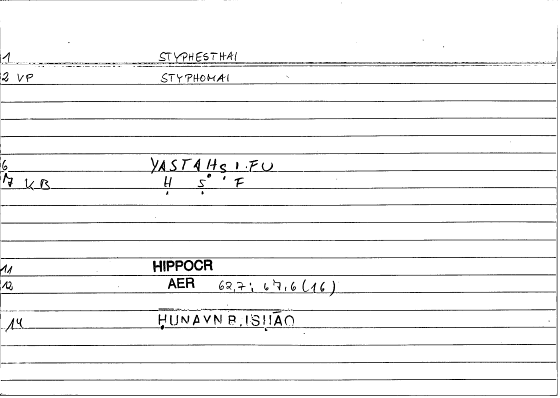 1 STYPHESTHAI
2 VP STYPHOMAI
6 YASTAHS I.FU
7 KB H S F
11 HIPPOCR
12 AER 62,7; 67,6 (16)
14 ḤUNAYN B. ISḤĀQ